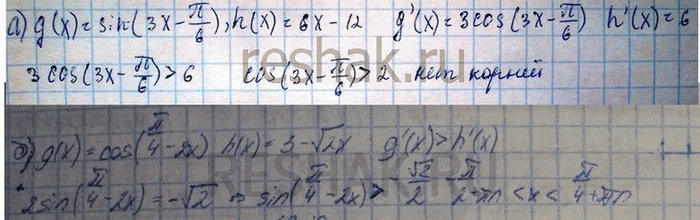 а) g(x) = sin(3x - π/6), h(x) = 6x - 12 g'(x) = 3cos(3x - π/6) h'(x) = 6
3cos(3x - π/6) > 6 cos(3x - π/6) > 2 нет корней
reshak.ru
б) g(x) = cos(π/4 - 2x) h(x) = 3 - √2x g'(x) > h'(x)
2sin(π/4 - 2x) = -√2 ⇒ sin(π/4 - 2x) > -√2/2 π/2 - πn < x < π/4 + πn
RESHAK.RU